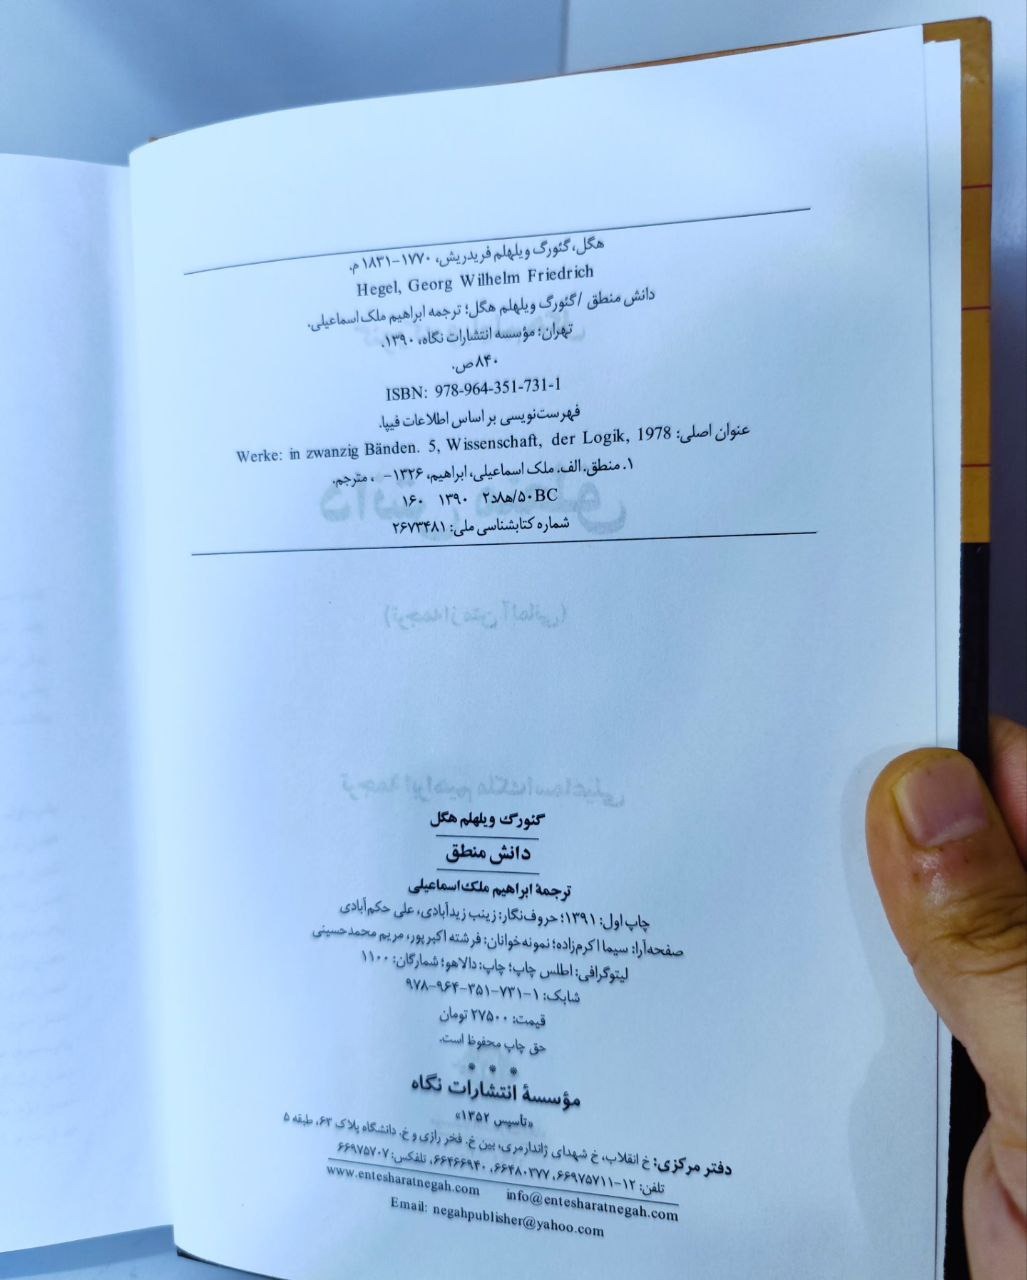 هگل، گئورگ ویلهلم فریدریش، ۱۷۷۰-۱۸۳۱ م.
Hegel, Georg Wilhelm Friedrich
دانش منطق /گئورگ ویلهلم هگل؛ ترجمه ابراهیم ملک‌اسماعیلی.
تهران: مؤسسه انتشارات نگاه، ۱۳۹۰.
۸۴۰ص.
ISBN: 978-964-351-731-1
فهرست‌نویسی بر اساس اطلاعات فیپا.
عنوان اصلی: Werke: in zwanzig Bänden. 5, Wissenschaft, der Logik, 1978
۱. منطق. الف. ملک اسماعیلی، ابراهیم، ۱۳۲۶- ، مترجم.
۱۶۰ ۱۳۹۰ ۲د۸ه/۵۰BC
شماره کتابشناسی ملی: ۲۶۷۳۴۸۱
(ترجمه از متن آلمانی)
ترجمهٔ ابراهیم ملک‌اسماعیلی
گئورگ ویلهلم هگل
دانش منطق
ترجمهٔ ابراهیم ملک‌اسماعیلی
چاپ اول: ۱۳۹۱؛ حروف‌نگار: زینب زیدآبادی، علی حکم‌آبادی
صفحه‌آرا: سیما اکرم‌زاده؛ نمونه‌خوانان: فرشته اکبرپور، مریم محمدحسینی
لیتوگرافی: اطلس چاپ؛ چاپ: دالاهو؛ شمارگان: ۱۱۰۰
شابک: ۱-۷۳۱-۳۵۱-۹۶۴-۹۷۸
قیمت: ۲۷۵۰۰ تومان
حق چاپ محفوظ است.
* * *
مؤسسهٔ انتشارات نگاه
«تأسیس ۱۳۵۲»
دفتر مرکزی: خ انقلاب، خ شهدای ژاندارمری، بین خ. فخر رازی و خ. دانشگاه پلاک ۶۳، طبقه ۵
تلفن: ۱۲-۶۶۹۷۵۷۱۱، ۶۶۴۸۰۳۷۷، ۶۶۴۶۶۹۴۰، تلفکس: ۶۶۹۷۵۷۰۷
www.entesharatnegah.com info@entesharatnegah.com
Email: negahpublisher@yahoo.com